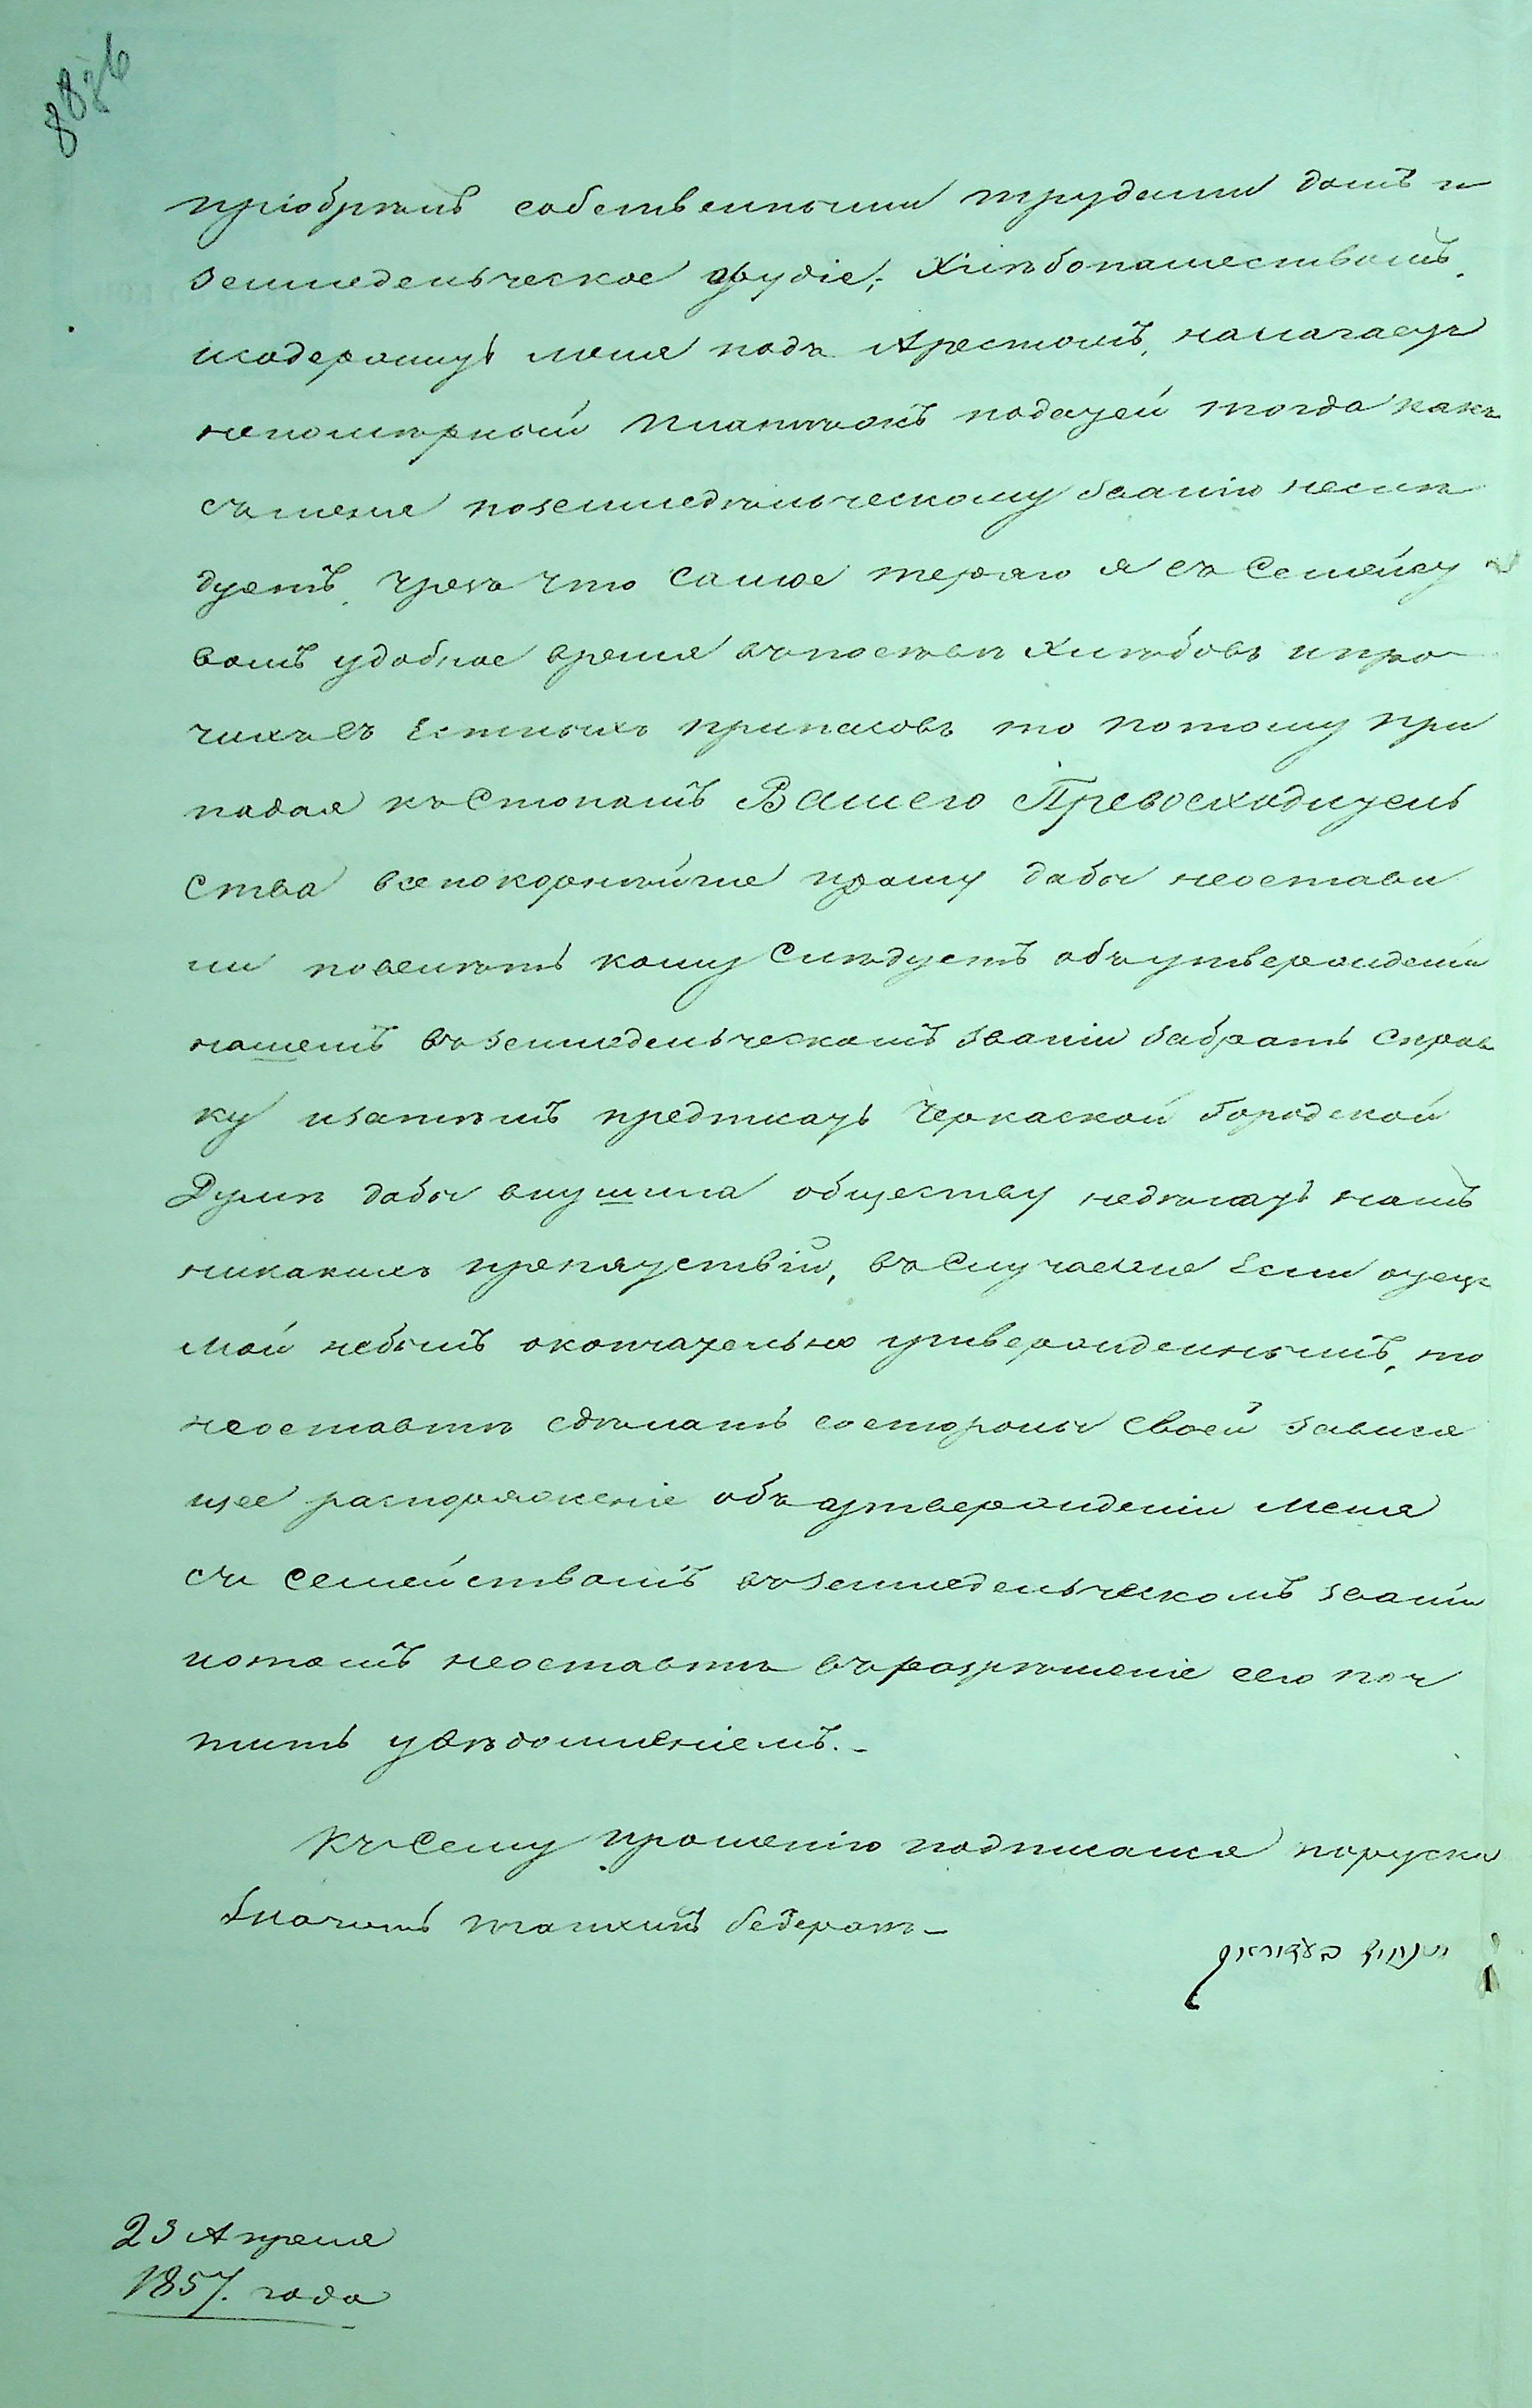 пріобрѣлъ собственными трудами домъ и
земледельческое орудіе, хлѣбопашествомъ,
исодержитъ меня подъ Арестомъ, налагаетъ
непомѣрный платежъ податей тогда какъ
съ меня поземледѣльческому званію неслѣ
дуетъ, чрезъ что самое теряю я съ Семейст
вомъ удобное время въпосѣвѣ хлѣбовъ ипро
чихъ съестныхъ припасовъ то потому при
падая къ Стопамъ Вашего Превосходитель
ства всепокорнѣйше прошу дабы неостави
ли повелѣть кому Слѣдуетъ объутвержденіи
нашемъ въземледельческомъ званіи забрать справ
ку изатѣмъ предписать Черкаской Городской
Думѣ дабы внушила обществу недѣлать намъ
никакихъ препятствій, въ Случаеже Если отецъ
мой небылъ окончательно утвержденнымъ, то
неоставте сдѣлать состороны своей завися
щее распоряженіе объутвержденіи меня
съ семействомъ въземледельческомъ званіи
потомъ неоставте въразрѣшеніе сего поч
тить увѣдомленіемъ.-
Къ Сему прошенію подписался
23 Апреля
1857. года